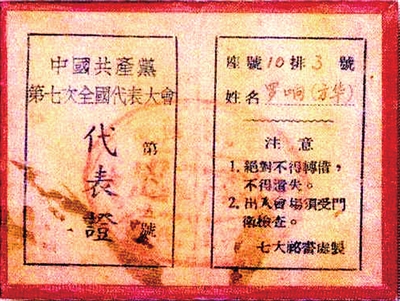 中國共產黨
第七次全國代表大會
代表證
第
號
座號10排3號
姓名 罗响(方华)
注意
1. 絕對不得轉借，
不得遺失。
2. 出入會場須受門
衛檢查。
七大祕書處製